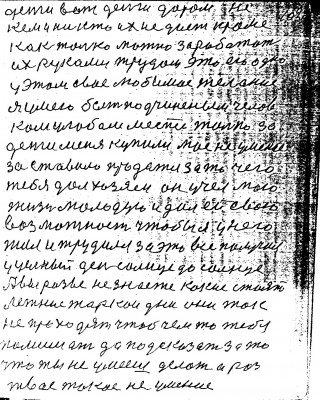 дети вот дети даром не
кем и ни кто их не дает кроме
как толко можно заработат
их руками трудом это его одно
у этом свое любимое желание
я умево быт подчиненым челов
ком у любом месте толко за
дети меня купили мое не умение
заставило продати за то чего
тебя дал хозяен он учел мою
жизн молодую и дал ее свою
возможност чтобы я у него
жил и трудился за это все получал
у целный ден солнце до солнце
А вы разве не знаете какие стоят
летние жаркои дни они так
не проходят чтоб чем то тебя
помимат да подсказат за то
что ты не умееш делат а раз
твое такое не умение